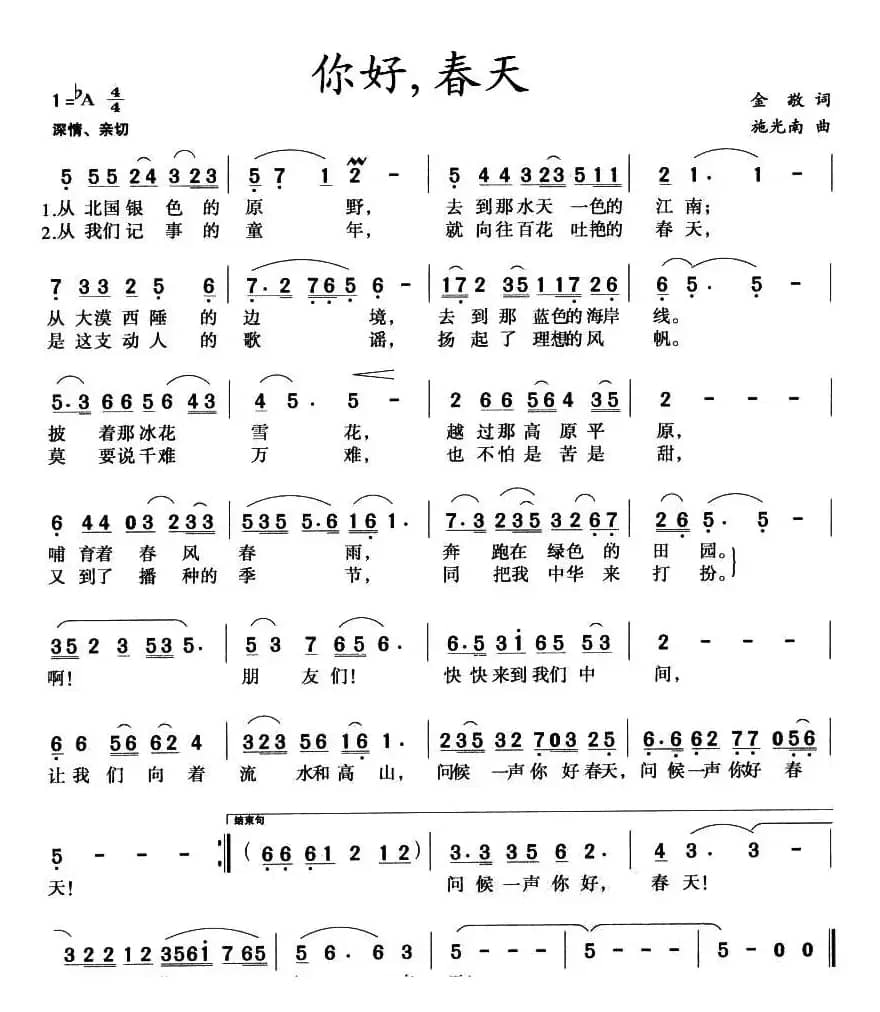 你好,春天
1=♭A 4/4 金 敬 词
深情、亲切 施光南 曲
5 55 24 3 23 | 5 7 1 2 - | 5 4 4 3 23 5 11 | 2 1. 1 - |
1.从 北国银 色 的 原 野, 去 到那水天 一色的 江 南;
2.从 我们记 事 的 童 年, 就 向往百花 吐艳的 春 天,
7 33 2 5 6 | 7.2 765 6 - | 172 35 117 26 | 6 5. 5 - |
从 大漠 西 陲 的 边 境, 去 到 那 蓝色的海岸 线。
是 这支 动 人 的 歌 谣, 扬 起 了 理想的风 帆。
5.3 66 56 43 | 4 5. 5 - | 2 66 564 35 | 2 - - - |
披 着那冰花 雪 花, 越 过那 高 原 平 原,
莫 要说千难 万 难, 也 不怕 是 苦 是 甜,
6 44 03 233 | 535 5.6 16 1. | 7.3 235 32 67 | 26 5. 5 - |
哺 育着 春 风 春 雨, 奔 跑在 绿色 的 田 园。
又 到了 播 种的 季 节, 同 把我 中华 来 打 扮。
35 2 3 53 5. | 53 7 65 6. | 6.5 31 65 53 | 2 - - - |
啊! 朋 友 们! 快 快来到我们 中 间,
6 6 56 62 4 | 323 56 16 1. | 235 32 703 25 | 6.6 62 77 056 |
让 我 们 向 着 流 水和 高 山, 问候 一声 你 好春天, 问 候一声 你好 春
结束句
5 - - - :| (66 61 2 12) | 3.3 35 6 2. | 4 3. 3 - |
天! 问 候 一声 你 好, 春 天!
32 2 12 3561 765 | 5 6. 6 3 | 5 - - - | 5 - - - | 5 - 0 0 |